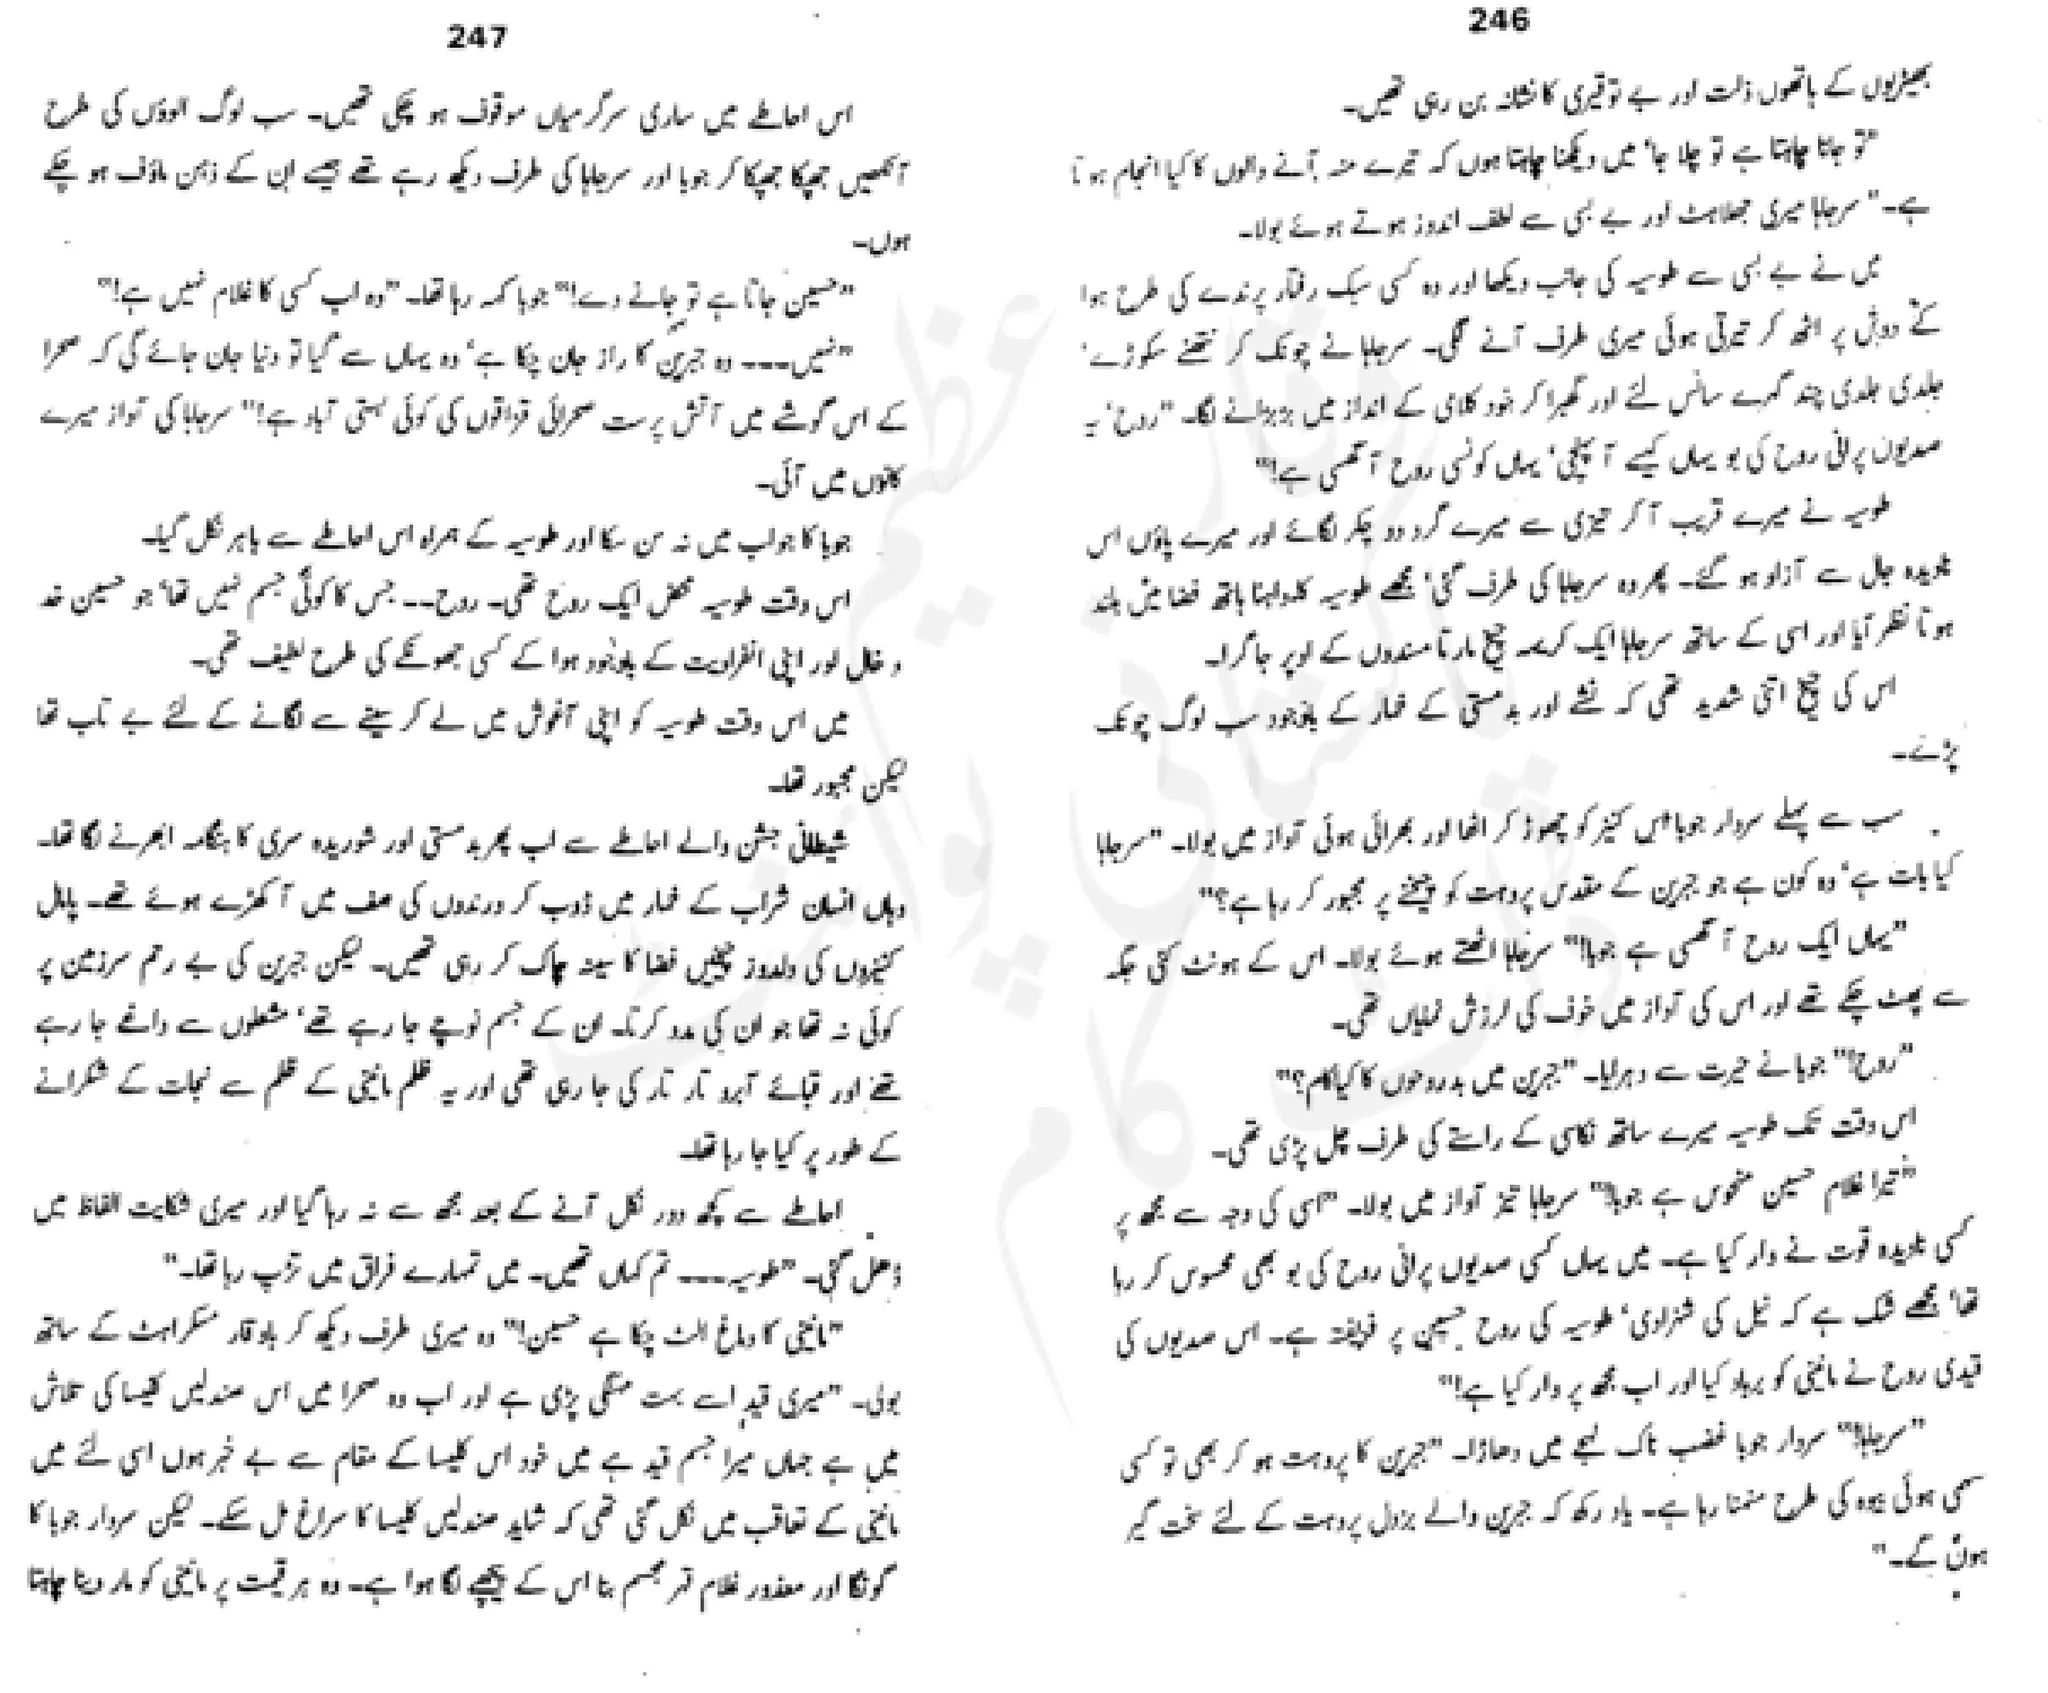 246
بھیڑیوں کے ہاتھوں ذلت اور بے توقیری کا نشانہ بن رہی تھیں۔
"تو جانا چاہتا ہے تو چلا جا' میں دیکھنا چاہتا ہوں کہ تیرے منہ آنے والوں کا کیا انجام ہوتا
ہے۔" سرجابا میری جھلاہٹ اور بے بسی سے لطف اندوز ہوتے ہوئے بولا۔
میں نے بے بسی سے طوبیہ کی جانب دیکھا اور وہ کسی سبک رفتار پرندے کی طرح ہوا
کے دوش پر اٹھ کر تیرتی ہوئی میری طرف آنے لگی۔ سرجابا نے چونک کر نتھنے سکوڑے'
جلدی جلدی چند گہرے سانس لئے اور گھبرا کر خود کلامی کے انداز میں بڑبڑانے لگا۔ "روح' یہ
صدیوں پرانی روح کی بو یہاں کیسے آ پہنچی' یہاں کونسی روح آ گھسی ہے!"
طوبیہ نے میرے قریب آ کر تیزی سے میرے گرد دو چکر لگائے اور میرے پاؤں اس
نادیدہ جال سے آزاد ہو گئے۔ پھر وہ سرجابا کی طرف گئی' مجھے طوبیہ کا داہنا ہاتھ فضا میں بلند
ہوتا نظر آیا اور اسی کے ساتھ سرجابا ایک کریہہ چیخ مارتا مندروں کے اوپر جا گرا۔
اس کی چیخ اتنی شدید تھی کہ نشے اور بدمستی کے خمار کے باوجود سب لوگ چونک
پڑے۔
سب سے پہلے سردار جوبا اس کنیز کو چھوڑ کر اٹھا اور بھرائی ہوئی آواز میں بولا۔ "سرجابا
کیا بات ہے' وہ کون ہے جو جبرین کے مقدس پروہت کو چیخنے پر مجبور کر رہا ہے؟"
"یہاں ایک روح آ گھسی ہے جوبا!" سرجابا اٹھتے ہوئے بولا۔ اس کے ہونٹ کئی جگہ
سے پھٹ چکے تھے اور اس کی آواز میں خوف کی لرزش نمایاں تھی۔
"روح!" جوبا نے حیرت سے دہرایا۔ "جبرین میں بدروحوں کا کیا کام؟"
اس وقت تک طوبیہ میرے ساتھ نکاسی کے راستے کی طرف چل پڑی تھی۔
"تیرا غلام حسین منحوس ہے جوبا!" سرجابا تیز آواز میں بولا۔ "اسی کی وجہ سے مجھ پر
کسی نادیدہ قوت نے وار کیا ہے۔ میں یہاں کسی صدیوں پرانی روح کی بو بھی محسوس کر رہا
تھا' مجھے شک ہے کہ نیل کی شہزادی' طوبیہ کی روح حسین پر فریفتہ ہے۔ اس صدیوں کی
قیدی روح نے مانیتی کو برباد کیا اور اب مجھ پر وار کیا ہے!"
"سرجابا!" سردار جوبا غضب ناک لہجے میں دھاڑا۔ "جبرین کا پروہت ہو کر بھی تو کسی
سہمی ہوئی بیوہ کی طرح منمنا رہا ہے۔ یاد رکھ کہ جبرین والے بزدل پروہت کے لئے سخت گیر
ہوں گے۔"
247
اس احاطے میں ساری سرگرمیاں موقوف ہو چکی تھیں۔ سب لوگ الوؤں کی طرح
آنکھیں جھپکا جھپکا کر جوبا اور سرجابا کی طرف دیکھ رہے تھے جیسے ان کے ذہن ماؤف ہو چکے
ہوں۔
"حسین جاتا ہے تو جانے دے!" جوبا کہہ رہا تھا۔ "وہ اب کسی کا غلام نہیں ہے!"
"نہیں۔۔۔۔ وہ جبرین کا راز جان چکا ہے' وہ یہاں سے گیا تو دنیا جان جائے گی کہ صحرا
کے اس گوشے میں آتش پرست صحرائی قزاقوں کی کوئی بستی آباد ہے!" سرجابا کی آواز میرے
کانوں میں آئی۔
جوبا کا جواب میں نہ سن سکا اور طوبیہ کے ہمراہ اس احاطے سے باہر نکل گیا۔
اس وقت طوبیہ محض ایک روح تھی۔ روح۔۔ جس کا کوئی جسم نہیں تھا' جو حسین خد
و خال اور اپنی انفرادیت کے باوجود ہوا کے کسی جھونکے کی طرح لطیف تھی۔
میں اس وقت طوبیہ کو اپنی آغوش میں لے کر سینے سے لگانے کے لئے بے تاب تھا
لیکن مجبور تھا۔
شیطانی جشن والے احاطے سے اب پھر بدمستی اور شوریدہ سری کا ہنگامہ ابھرنے لگا تھا۔
وہاں انسان شراب کے خمار میں ڈوب کر درندوں کی صف میں آ کھڑے ہوئے تھے۔ پامال
کنیزوں کی دلدوز چیخیں فضا کا سینہ چاک کر رہی تھیں۔ لیکن جبرین کی بے رحم سرزمین پر
کوئی نہ تھا جو ان کی مدد کرتا۔ ان کے جسم نوچے جا رہے تھے' مشعلوں سے داغے جا رہے
تھے اور قبائے آبرو تار تار کی جا رہی تھی اور یہ ظلم مانیتی کے ظلم سے نجات کے شکرانے
کے طور پر کیا جا رہا تھا۔
احاطے سے کچھ دور نکل آنے کے بعد مجھ سے نہ رہا گیا اور میری شکایت الفاظ میں
ڈھل گئی۔ "طوبیہ۔۔۔۔ تم کہاں تھیں۔ میں تمہارے فراق میں تڑپ رہا تھا۔"
"مانیتی کا دماغ الٹ چکا ہے حسین!" وہ میری طرف دیکھ کر باوقار مسکراہٹ کے ساتھ
بولی۔ "میری قید اسے بہت مہنگی پڑی ہے اور اب وہ صحرا میں اس صندلیں کلیسا کی تلاش
میں ہے جہاں میرا جسم قید ہے میں خود اس کلیسا کے مقام سے بے خبر ہوں اسی لئے میں
مانیتی کے تعاقب میں نکل گئی تھی کہ شاید صندلیں کلیسا کا سراغ مل سکے۔ لیکن سردار جوبا کا
گونگا اور معذور غلام قہر مجسم بنا اس کے پیچھے لگا ہوا ہے۔ وہ ہر قیمت پر مانیتی کو مار دینا چاہتا
عظیم
پاکستانی پوائنٹ
ڈاٹ کام